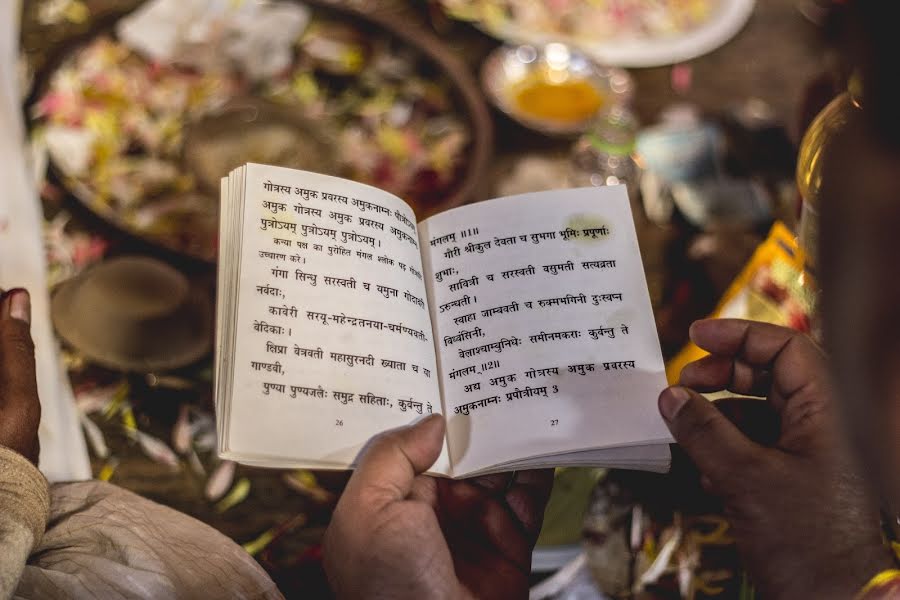 गोत्रस्य अमुक प्रवरस्य अमुकनाम्नः
अमुक गोत्रस्य अमुक प्रवरस्य अमुकनाम्नः
पुत्रोऽयम् पुत्रोऽयम् पुत्रोऽयम् ।
कन्या पक्ष का पुरोहित मंगल श्लोक पढ़
उच्चारण करे ।
गंगा सिन्धु सरस्वती च यमुना गोदावरी
नर्वदाः,
कावेरी सरयू-महेन्द्रतनया-चर्मण्यवती-
वेदिकाः ।
क्षिप्रा वेत्रवती महासुरनदी ख्याता च या
गाण्डवी,
पुण्या पुण्यजलैः समुद्र सहिताः, कुर्वन्तु ते
26
मंगलम् ।।1।।
गौरी श्रीकुल देवता च सुभगा भूमिः प्रपूर्णाः
शुभाः,
सावित्री च सरस्वती वसुमती सत्यव्रता
ऽरुन्धती ।
स्वाहा जाम्ववती च रुक्मभगिनी दुःस्वप्न
विध्वंसिनी,
वेलाश्चाम्बुनिधेः समीनमकराः कुर्वन्तु ते
मंगलम् ।।2।।
अद्य अमुक गोत्रस्य अमुक प्रवरस्य
अमुकनाम्नः प्रपौत्रीयम् 3
27